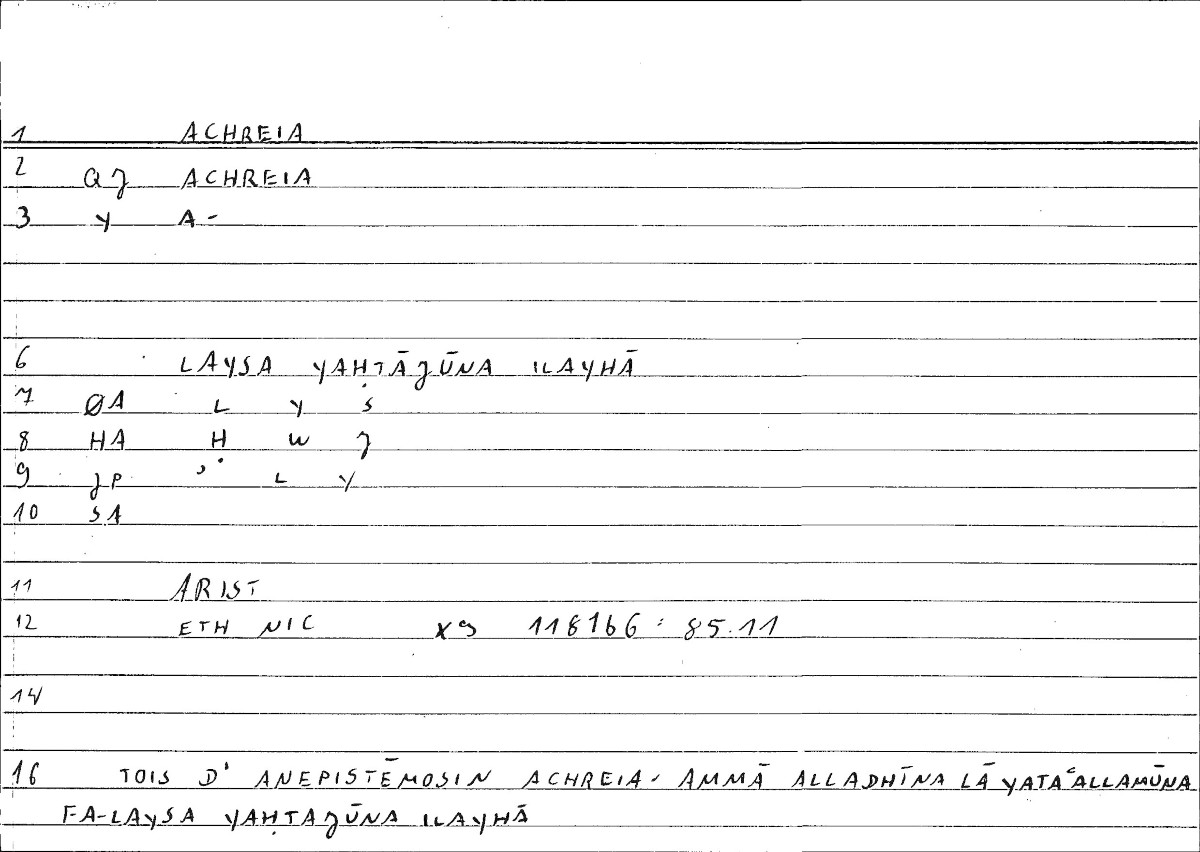 1 ACHREIA
2 QJ ACHREIA
3 Y A-
6 LAYSA YAḤTĀJŪNA ILAYHĀ
7 ØA L Y S
8 HA H W J
9 JP ʾ L Y
10 SA
11 ARIST
12 ETH NIC X9 1181b6 : 85.11
14
16 TOIS D' ANEPISTĒMOSIN ACHREIA. AMMĀ ALLADHĪNA LĀ YATAʿALLAMŪNA
FA-LAYSA YAḤTAJŪNA ILAYHĀ